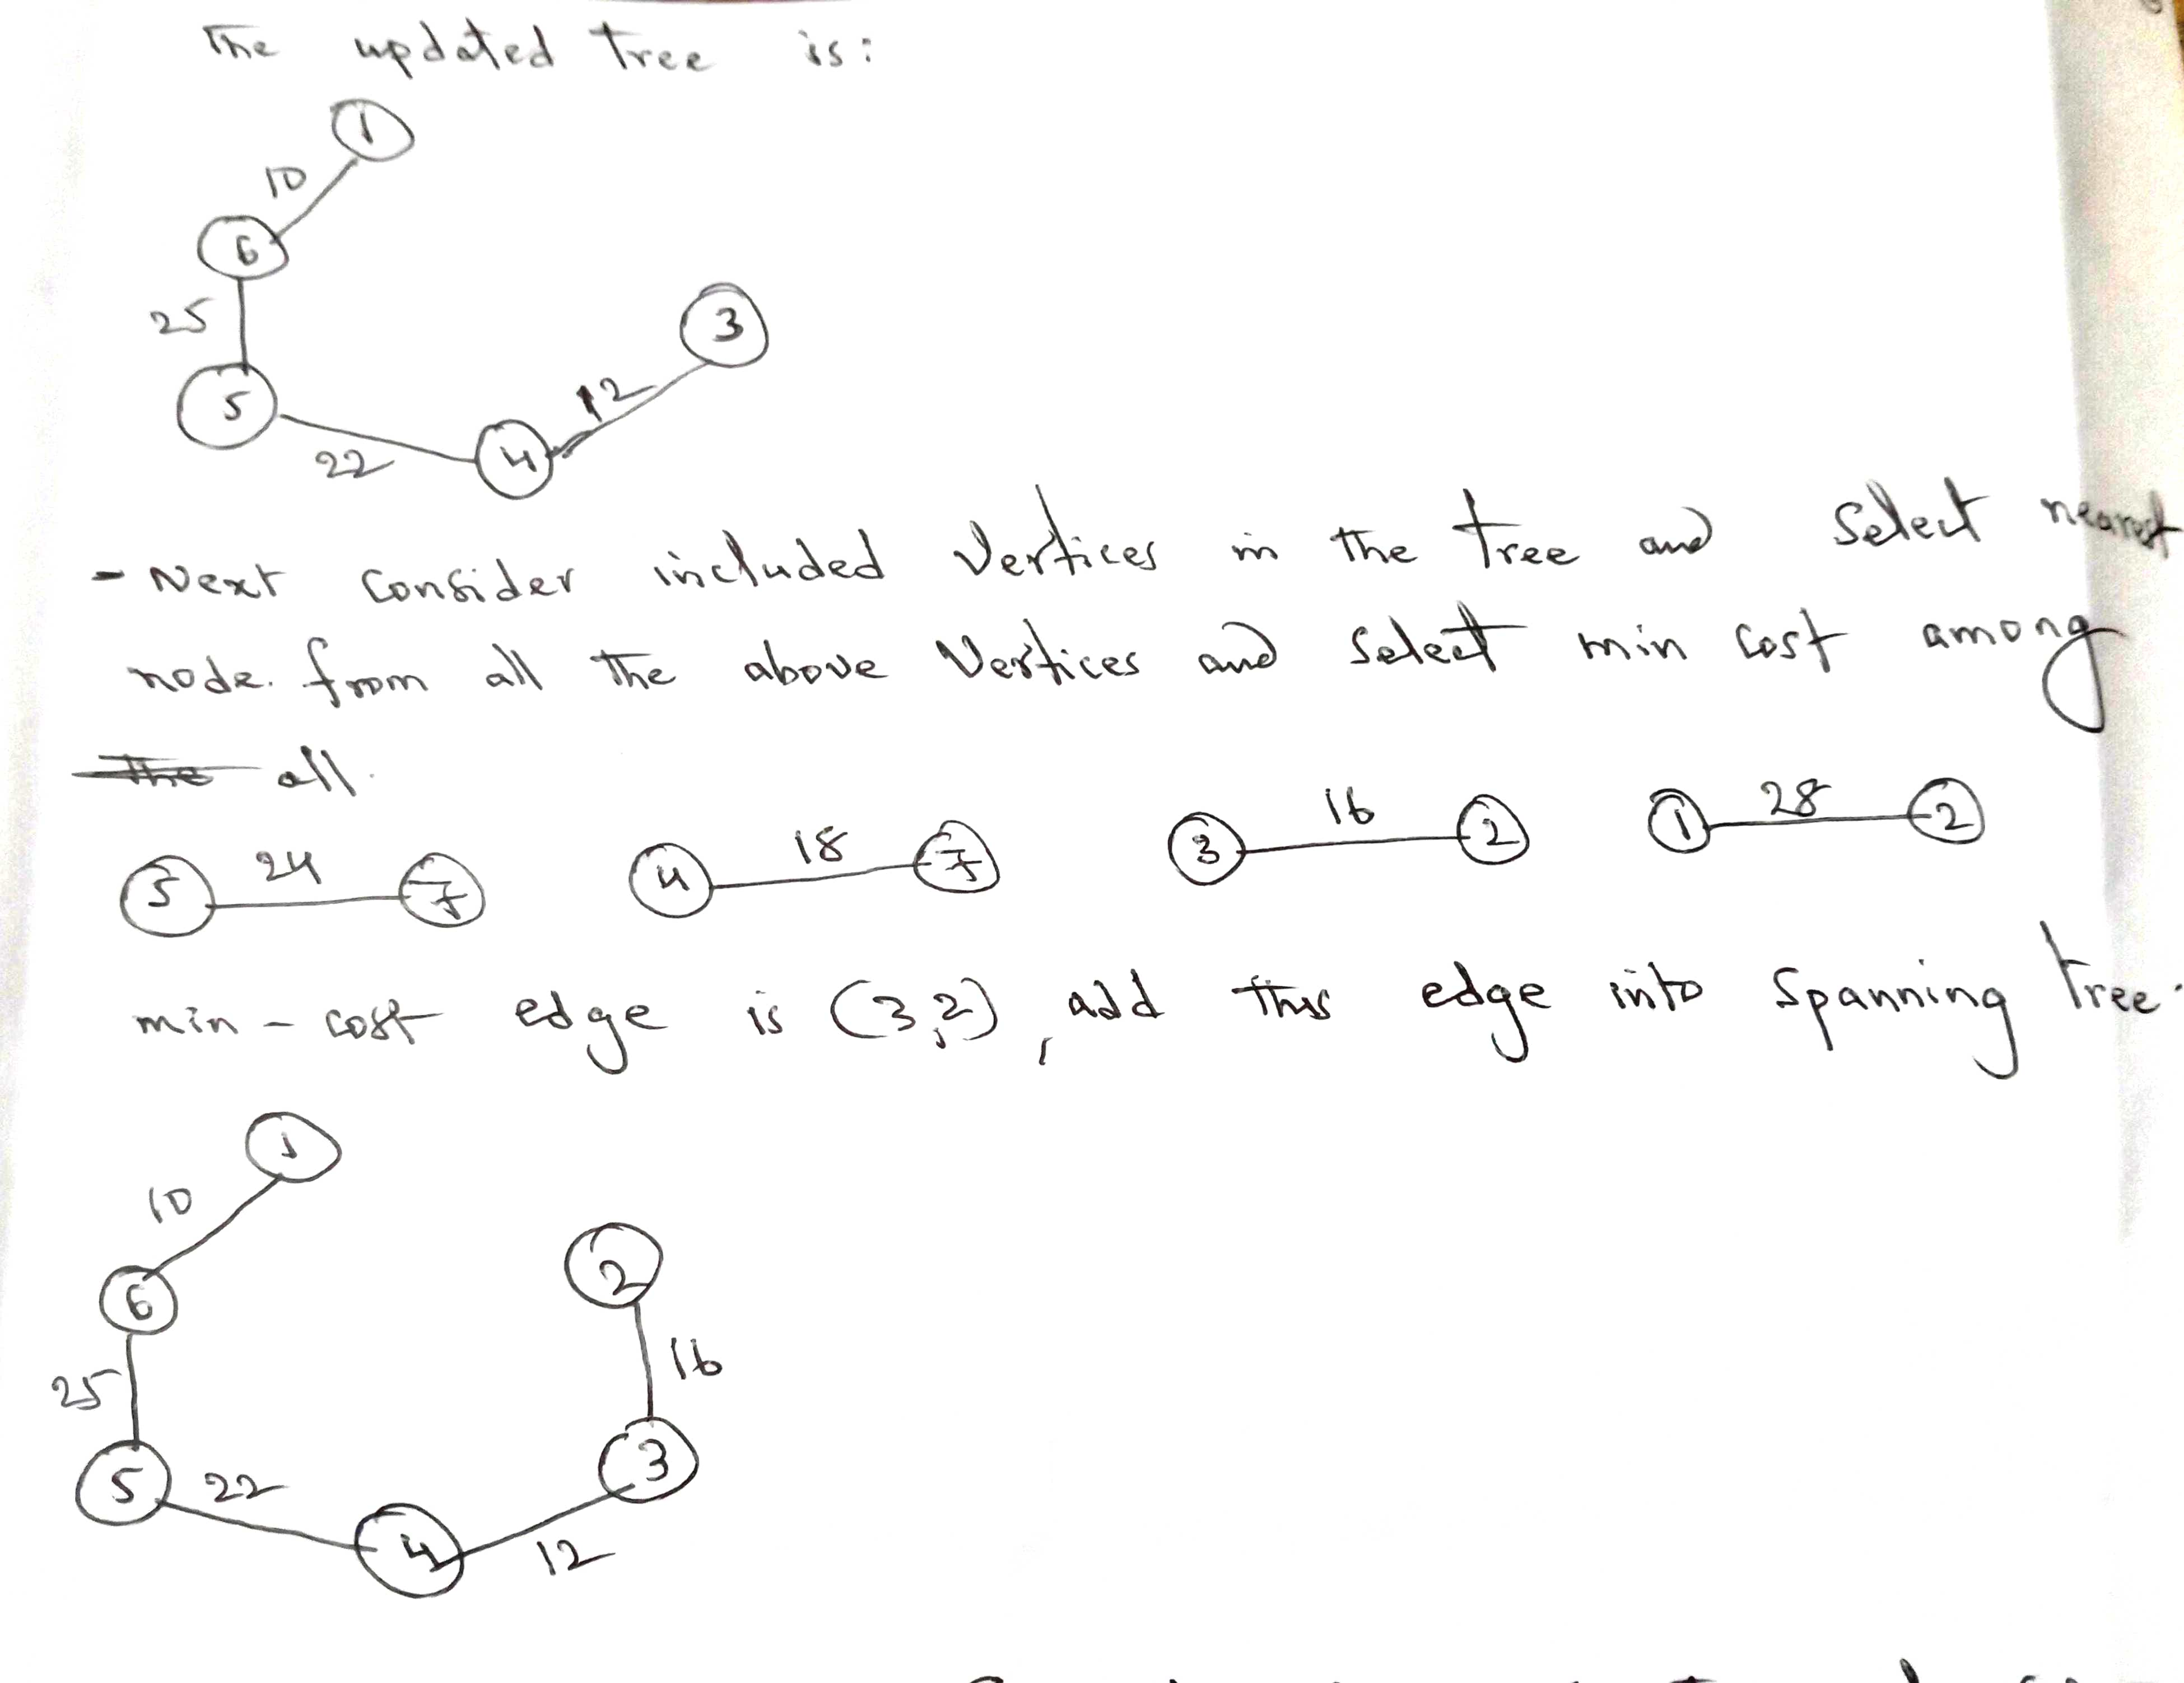 The updated tree is:
1
10
6
25
3
5
12
22
4
- Next Consider included Vertices in the tree and Select nearest
node. from all the above Vertices and Select min Cost among
the all.
5 24 7 4 18 7 3 16 2 1 28 2
min - cost edge is (3,2), add this edge into Spanning tree.
1
10
2
6
16
25
3
5 22
4
12